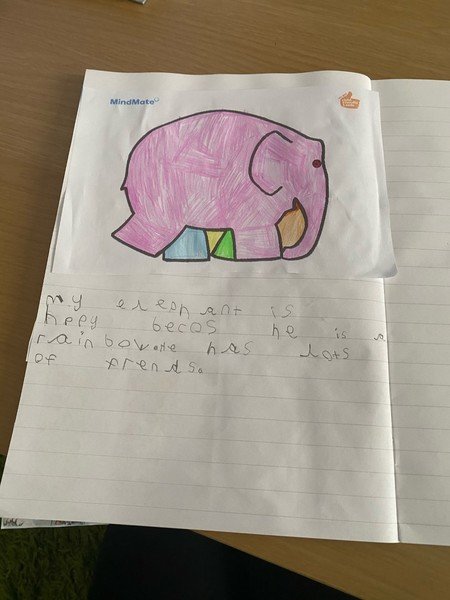 MindMate
my elephant is
heppy becos he is a
rainbow he has lots
of frends.